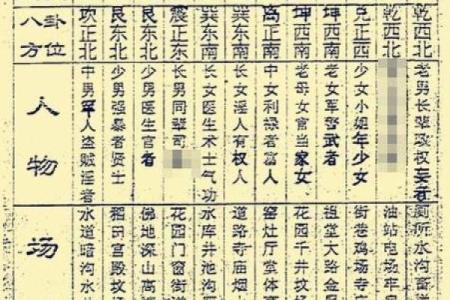 八卦
方位
坎正北
艮东北
艮东北
震正东
巽东南
巽东南
离正南
坤西南
坤西南
兑正西
乾西北
乾西北
人物
中男罕人盗贼淫者
少男强暴者贤士
少男医生官者
长男同辈司
长女医生术士气功
长女淫人有权人
中女利禄者富人
老母女官当家女
老女军警武者
少女小姐年少女
老男长辈政权
场
水道暗沟水
稻田宫殿坟
佛地深山高
花园门窗街
水库井池沟
道路寺庙烟
窑灶厅堂体
花园千井坟
祖堂大路金
街巷鸡场寺
油站电场牢
厕所水沟畜